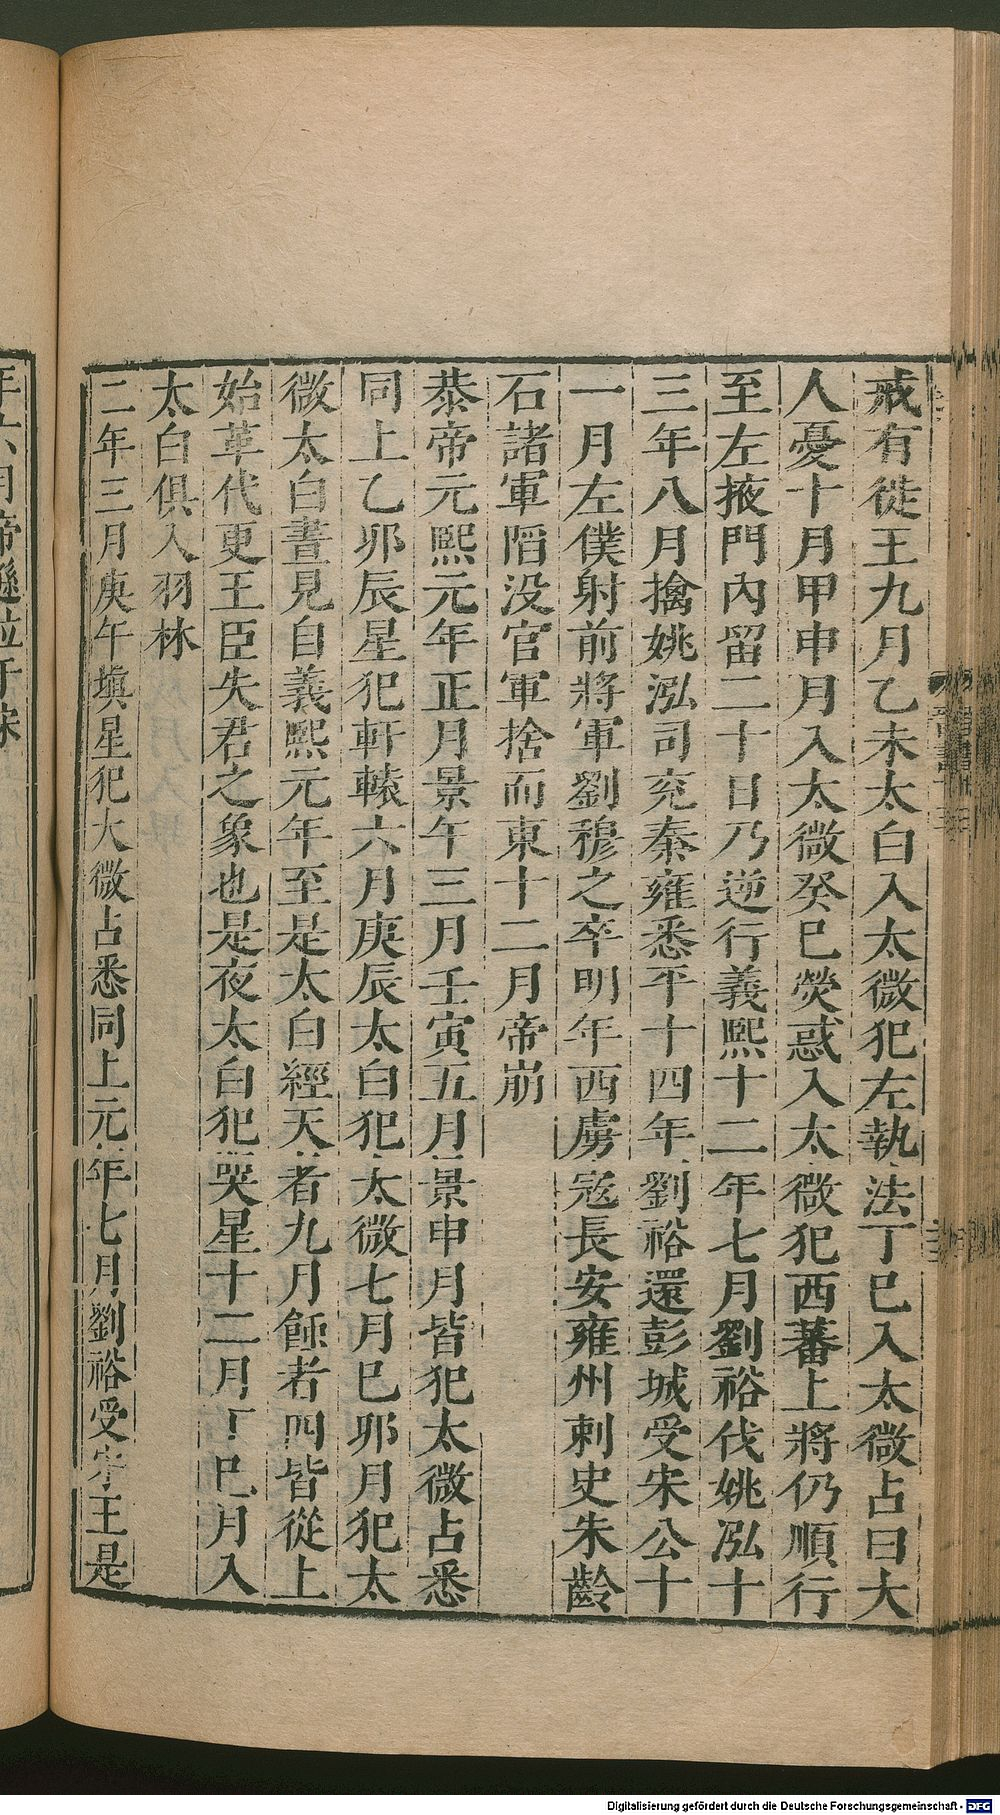 戒有徙王九月乙未太白入太微犯左執法丁巳入太微占曰大
人憂十月甲申月入太微癸巳熒惑入太微犯西蕃上將仍順行
至左掖門內留二十日乃逆行義熙十二年七月劉裕伐姚泓十
三年八月擒姚泓司兖秦雍悉平十四年劉裕還彭城受宋公十
一月左僕射前將軍劉穆之卒明年西虜寇長安雍州刺史朱齡
石諸軍陷没官軍捨而東十二月帝崩
恭帝元熙元年正月景午三月壬寅五月景申月皆犯太微占悉
同上乙卯辰星犯軒轅六月庚辰太白犯太微七月巳卯月犯太
微太白晝見自義熙元年至是太白經天者九月蝕者四皆從上
始革代更王臣失君之象也是夜太白犯哭星十二月丁巳月入
太白俱入羽林
二年三月庚午填星犯大微占悉同上元年七月劉裕受宋王是
年六月帝遜位于宋
Digitalisierung gefördert durch die Deutsche Forschungsgemeinschaft - DFG